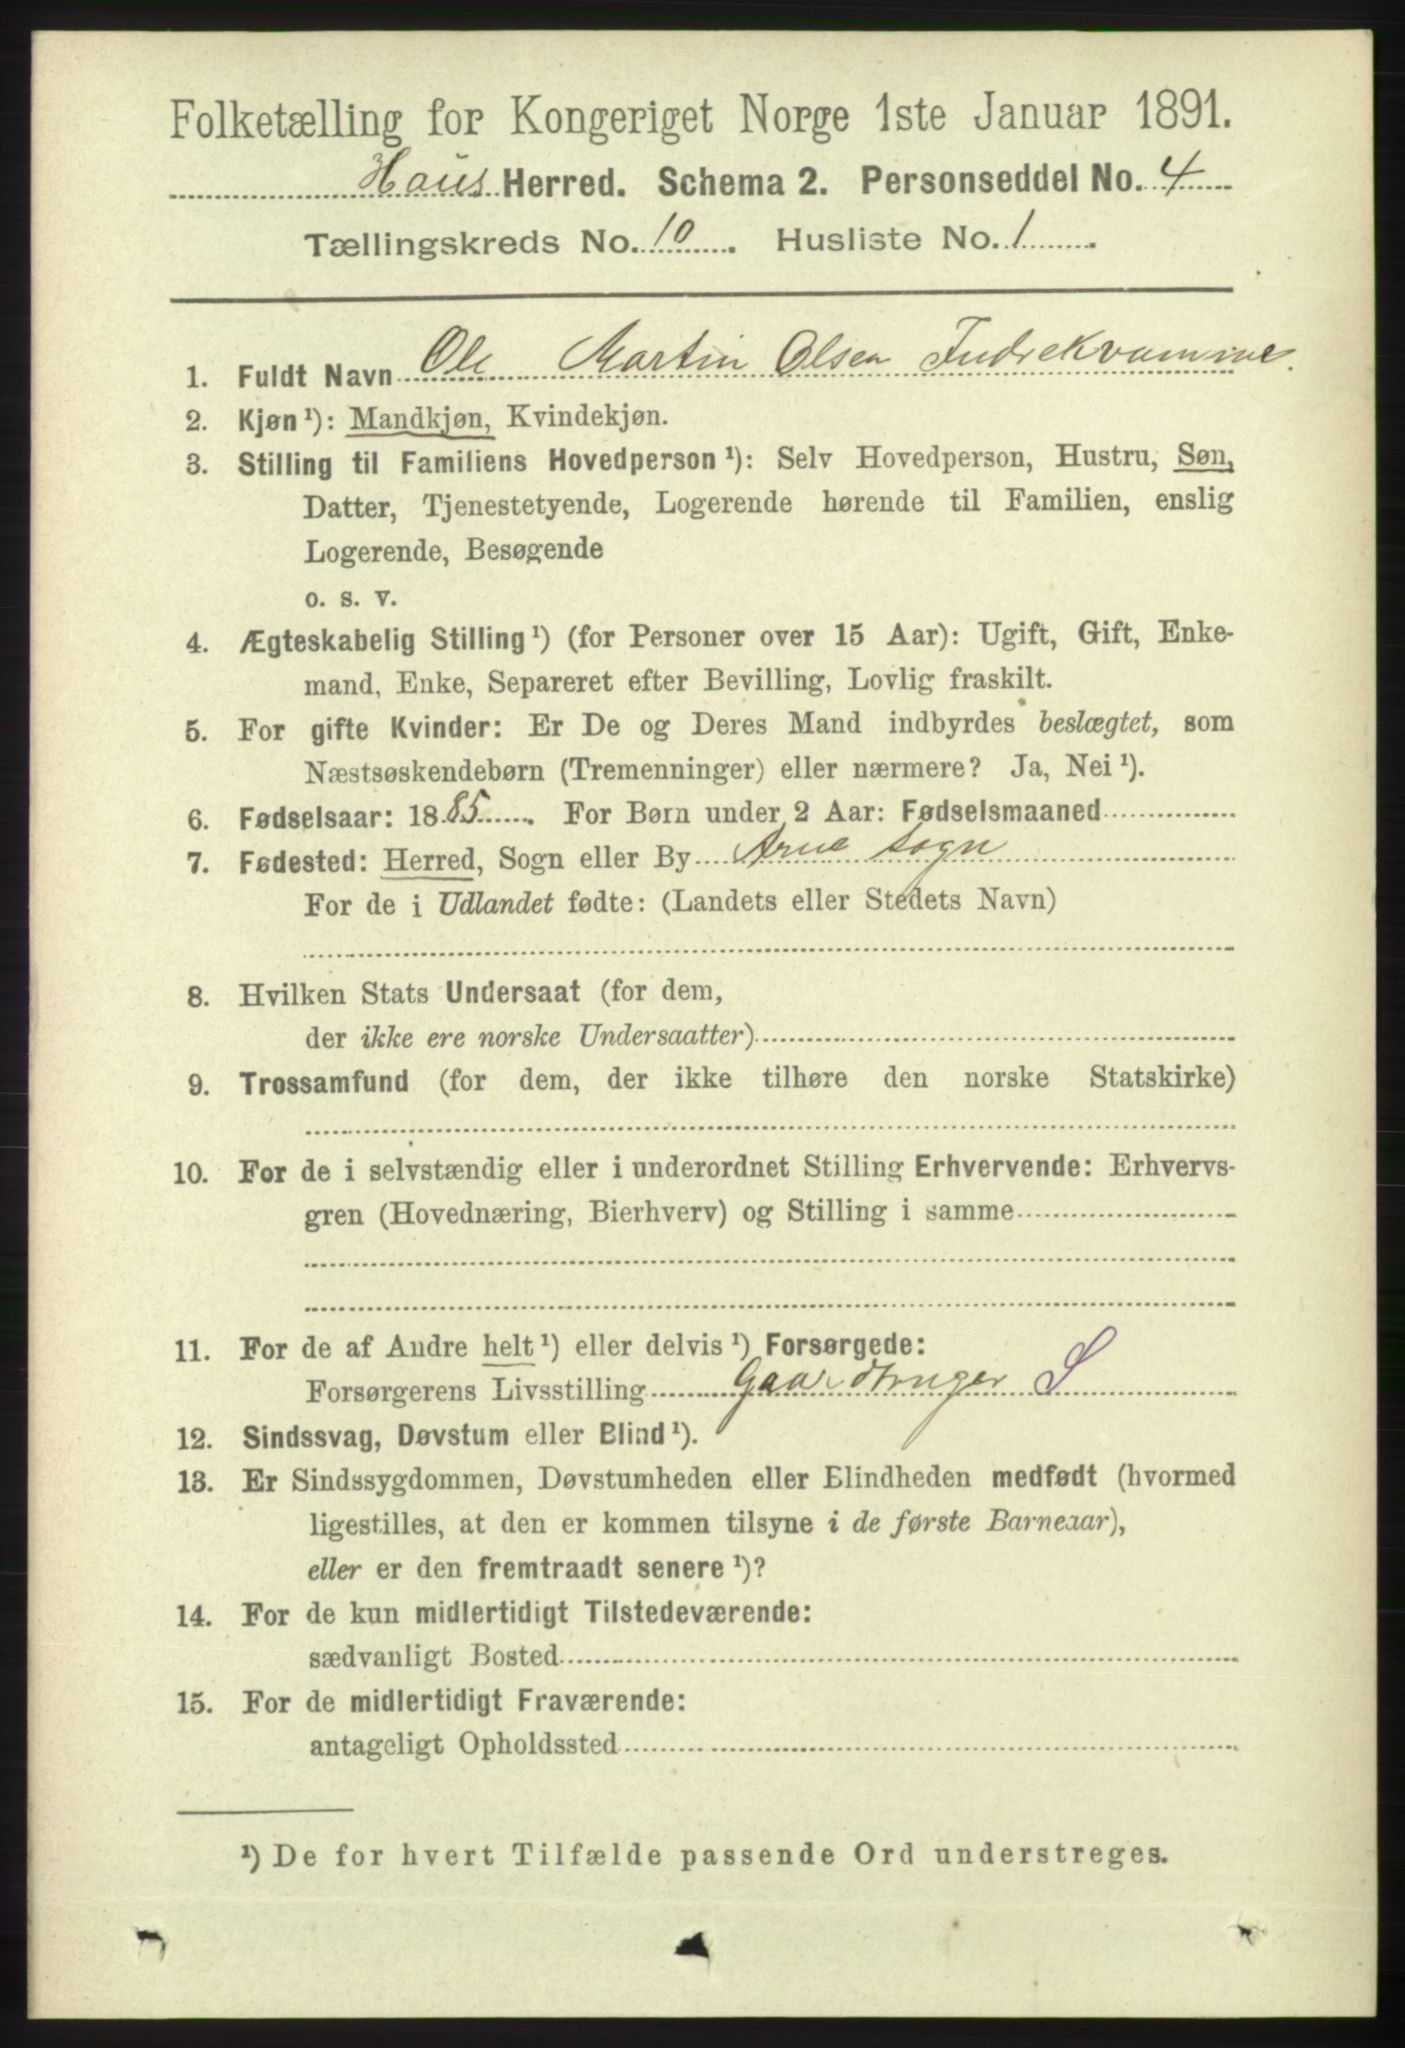 Folketælling for Kongeriget Norge 1ste Januar 1891.
Haus Herred. Schema 2. Personseddel No. 4
Tællingskreds No. 10. Husliste No. 1.
1. Fuldt Navn Ole Martin Olsen Indrekvamme.
2. Kjøn ¹): Mandkjøn, Kvindekjøn.
3. Stilling til Familiens Hovedperson ¹): Selv Hovedperson, Hustru, Søn,
Datter, Tjenestetyende, Logerende hørende til Familien, enslig
Logerende, Besøgende
o. s. v.
4. Ægteskabelig Stilling ¹) (for Personer over 15 Aar): Ugift, Gift, Enke-
mand, Enke, Separeret efter Bevilling, Lovlig fraskilt.
5. For gifte Kvinder: Er De og Deres Mand indbyrdes beslægtet, som
Næstsøskendebørn (Tremenninger) eller nærmere? Ja, Nei ¹).
6. Fødselsaar: 1885. For Børn under 2 Aar: Fødselsmaaned
7. Fødested: Herred, Sogn eller By Arne Sogn
For de i Udlandet fødte: (Landets eller Stedets Navn)
8. Hvilken Stats Undersaat (for dem,
der ikke ere norske Undersaatter)
9. Trossamfund (for dem, der ikke tilhøre den norske Statskirke)
10. For de i selvstændig eller i underordnet Stilling Erhvervende: Erhvervs-
gren (Hovednæring, Bierhverv) og Stilling i samme
11. For de af Andre helt ¹) eller delvis ¹) Forsørgede:
Forsørgerens Livsstilling Gaardbruger S
12. Sindssvag, Døvstum eller Blind ¹).
13. Er Sindssygdommen, Døvstumheden eller Blindheden medfødt (hvormed
ligestilles, at den er kommen tilsyne i de første Barneaar),
eller er den fremtraadt senere ¹)?
14. For de kun midlertidigt Tilstedeværende:
sædvanligt Bosted
15. For de midlertidigt Fraværende:
antageligt Opholdssted
¹) De for hvert Tilfælde passende Ord understreges.